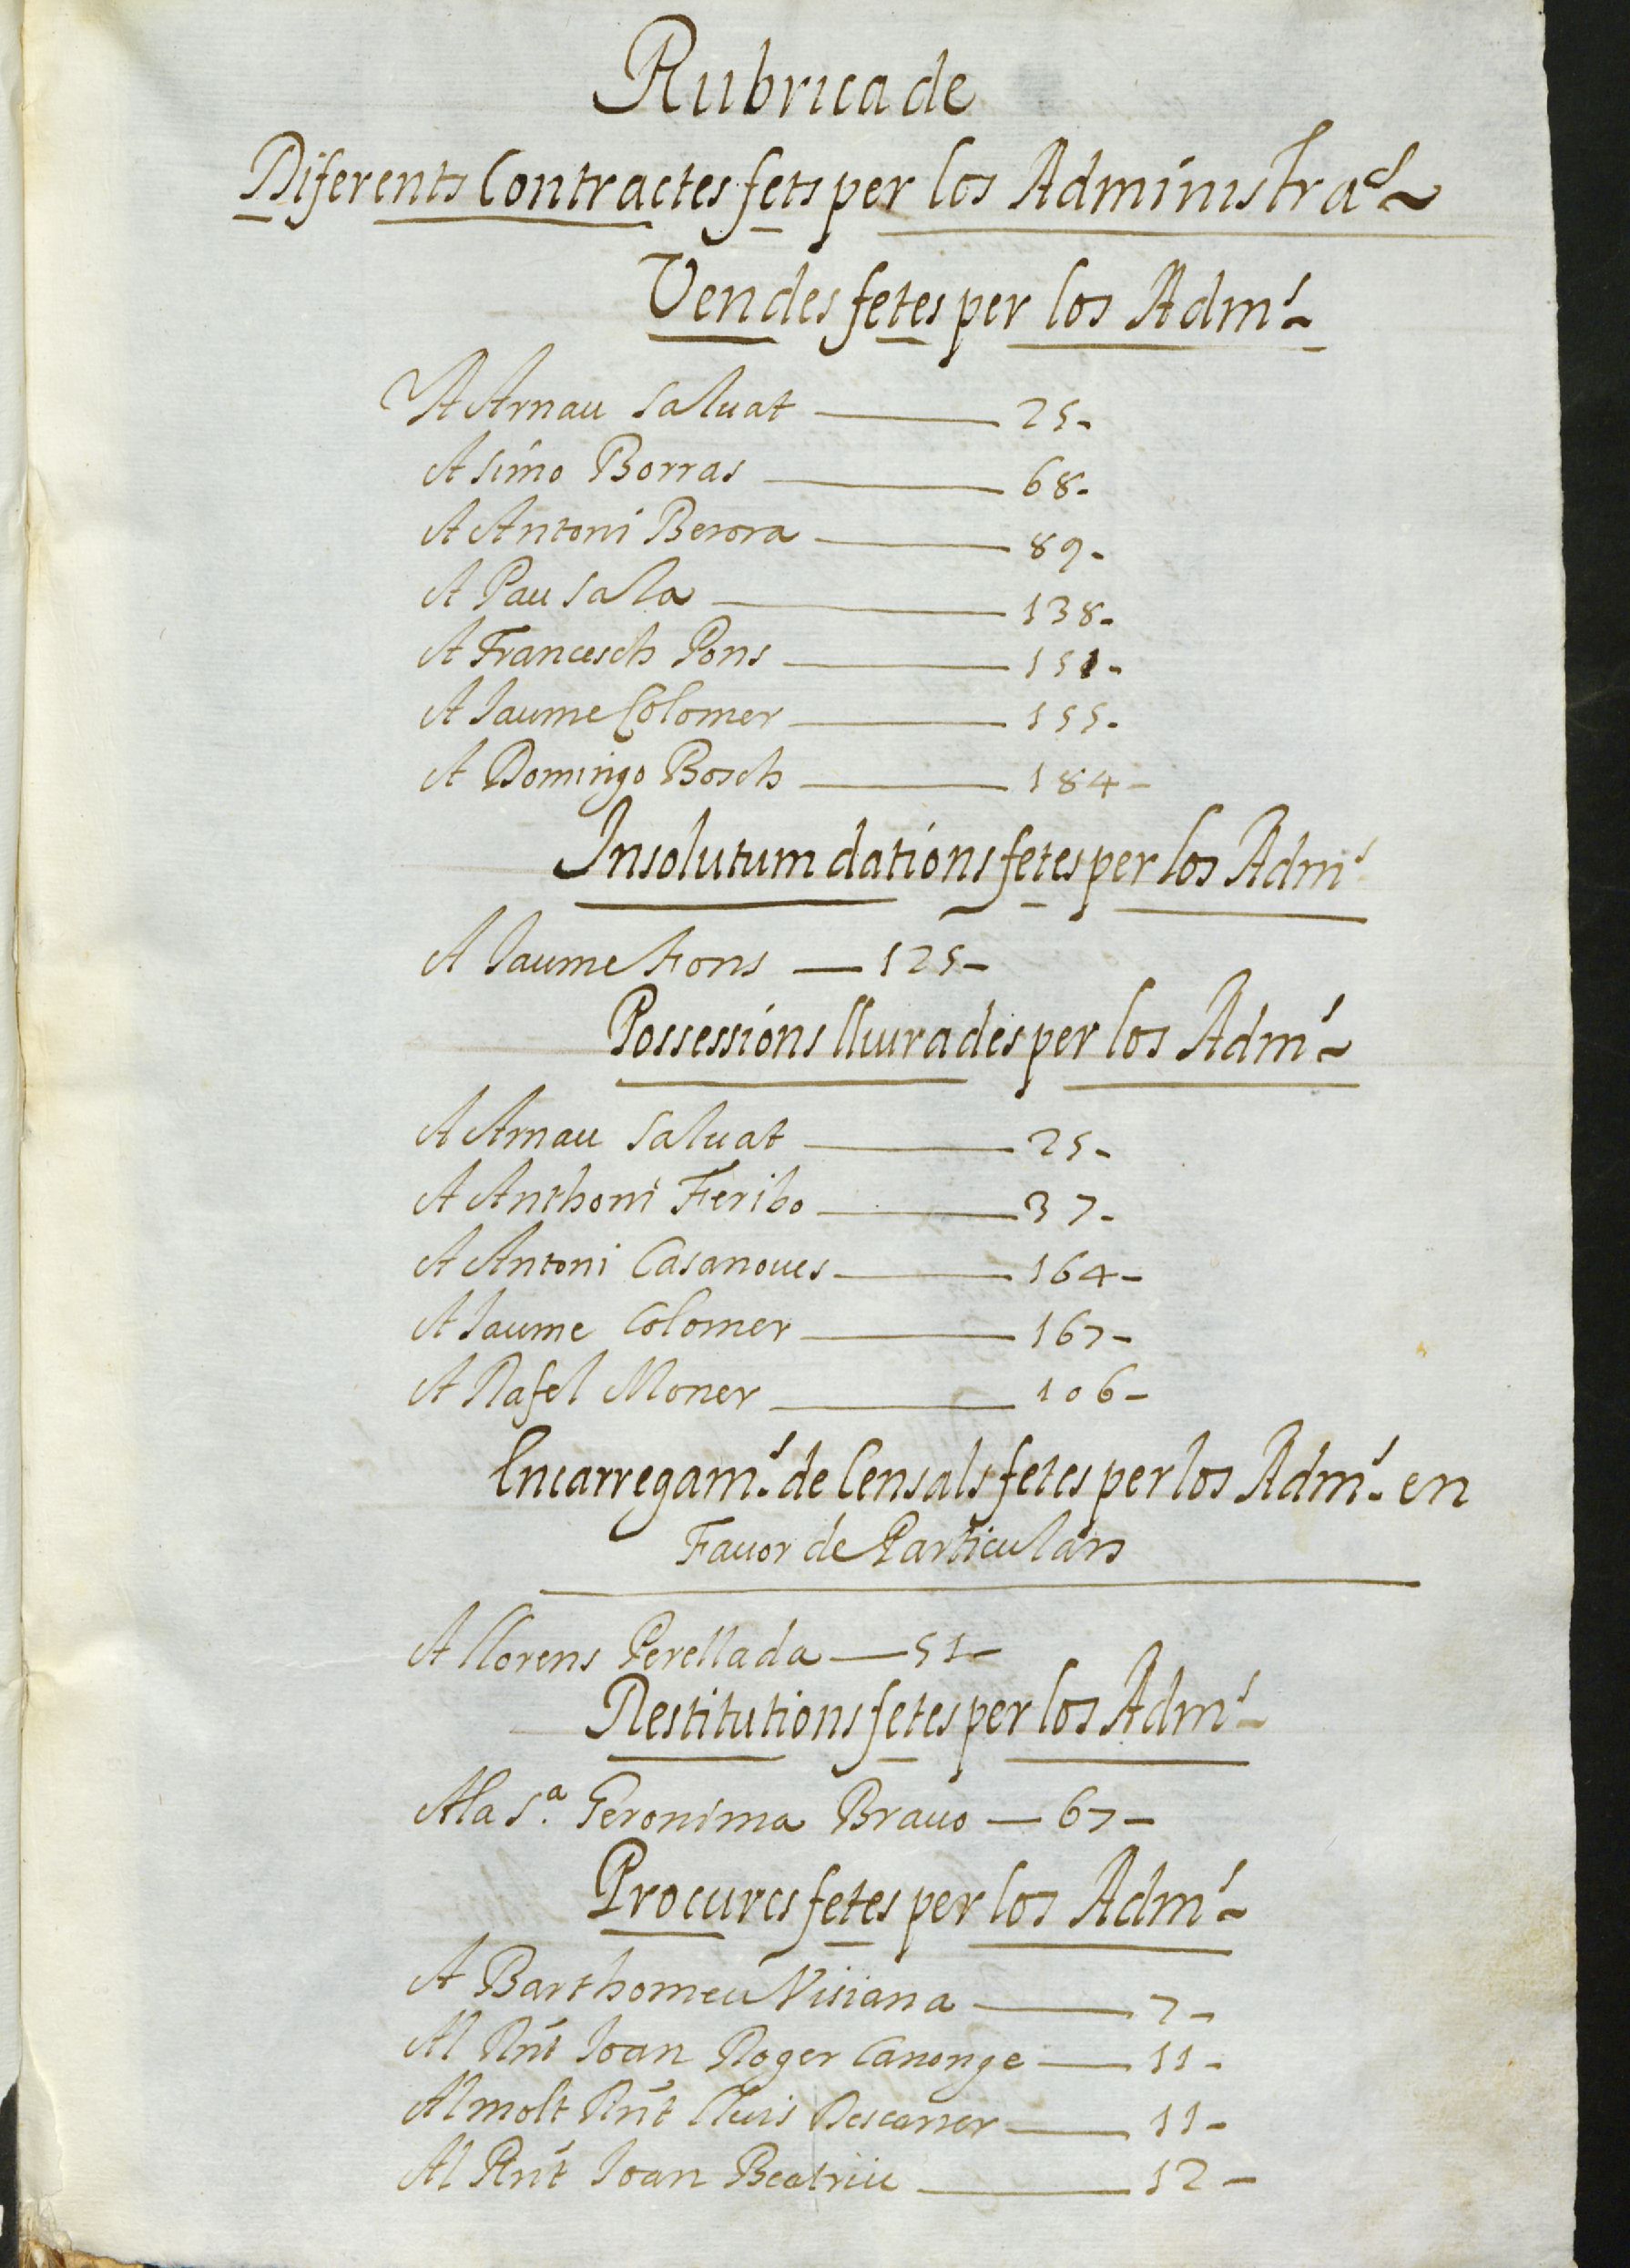 Rubrica de
Diferents Contractes fets per los Administra.ͬˢ
Vendes fetes per los Adm.ˢ
A Arnau Saluat — 25-
A Simo Borras — 68-
A Antoni Berora — 89-
A Pau Sala — 138-
A Francesch Pons — 151-
A Jaume Colomer — 155-
A Domingo Bosch — 184-
Insolutum dations fetes per los Adm.ˢ
A Jaume Fons — 125-
Possessións lliurades per los Adm.ˢ
A Arnau Saluat — 25-
A Anthoni Feribo — 37-
A Antoni Casanoues — 164-
A Jaume Colomer — 167-
A Rafel Moner — 106-
Encarregam.ˢ de Censals fetes per los Adm.ˢ en
Fauor de Particulars
A Llorens Perellada — 51-
Restitutions fetes per los Adm.ˢ
A la S.ª Geronima Brauo — 67-
Procures fetes per los Adm.ˢ
A Barthomeu Visiana — 7-
Al Rnt Joan Roger Canonge — 11-
Al molt Rnt Lluis Descarrer — 11-
Al Rnt Joan Beatriu — 12-